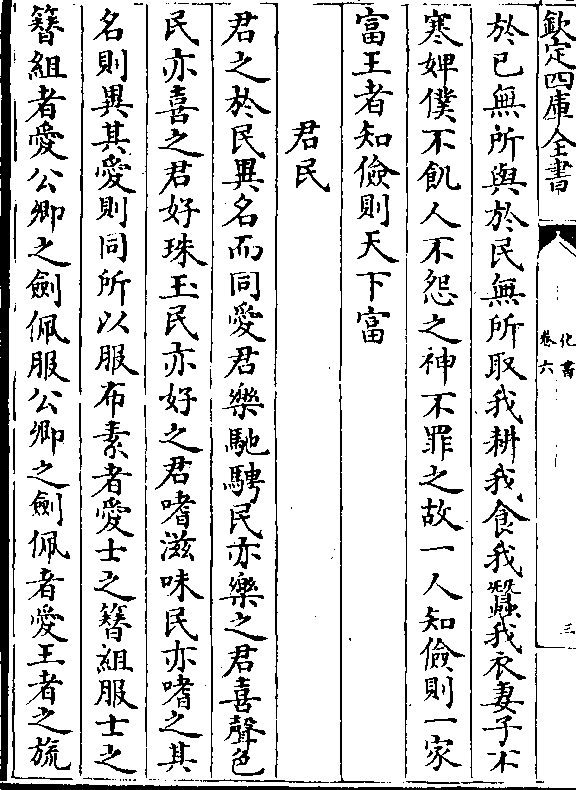 欽定四庫全書
化書
卷六
三
於已無所與於民無所取我耕我食我蠶我衣妻子不
寒婢僕不飢人不怨之神不罪之故一人知儉則一家
富王者知儉則天下富
君民
君之於民異名而同愛君樂馳騁民亦樂之君喜聲色
民亦喜之君好珠玉民亦好之君嗜滋味民亦嗜之其
名則異其愛則同所以服布素者愛士之簪組服士之
簪組者愛公卿之劍佩服公卿之劍佩者愛王者之旒